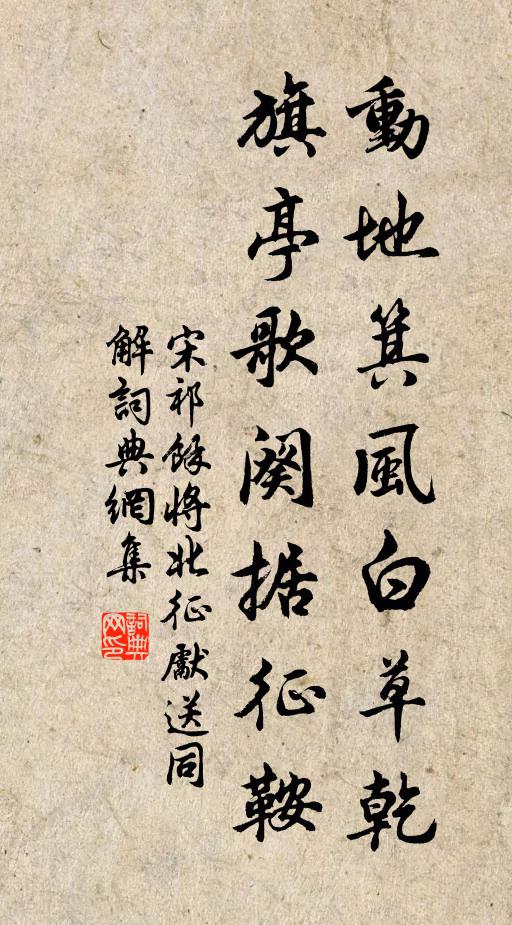 動地箕風白草乾
旗亭歌闋据征鞍
宋祁餘將北征獻送同
解詞典網集
詞典
网印